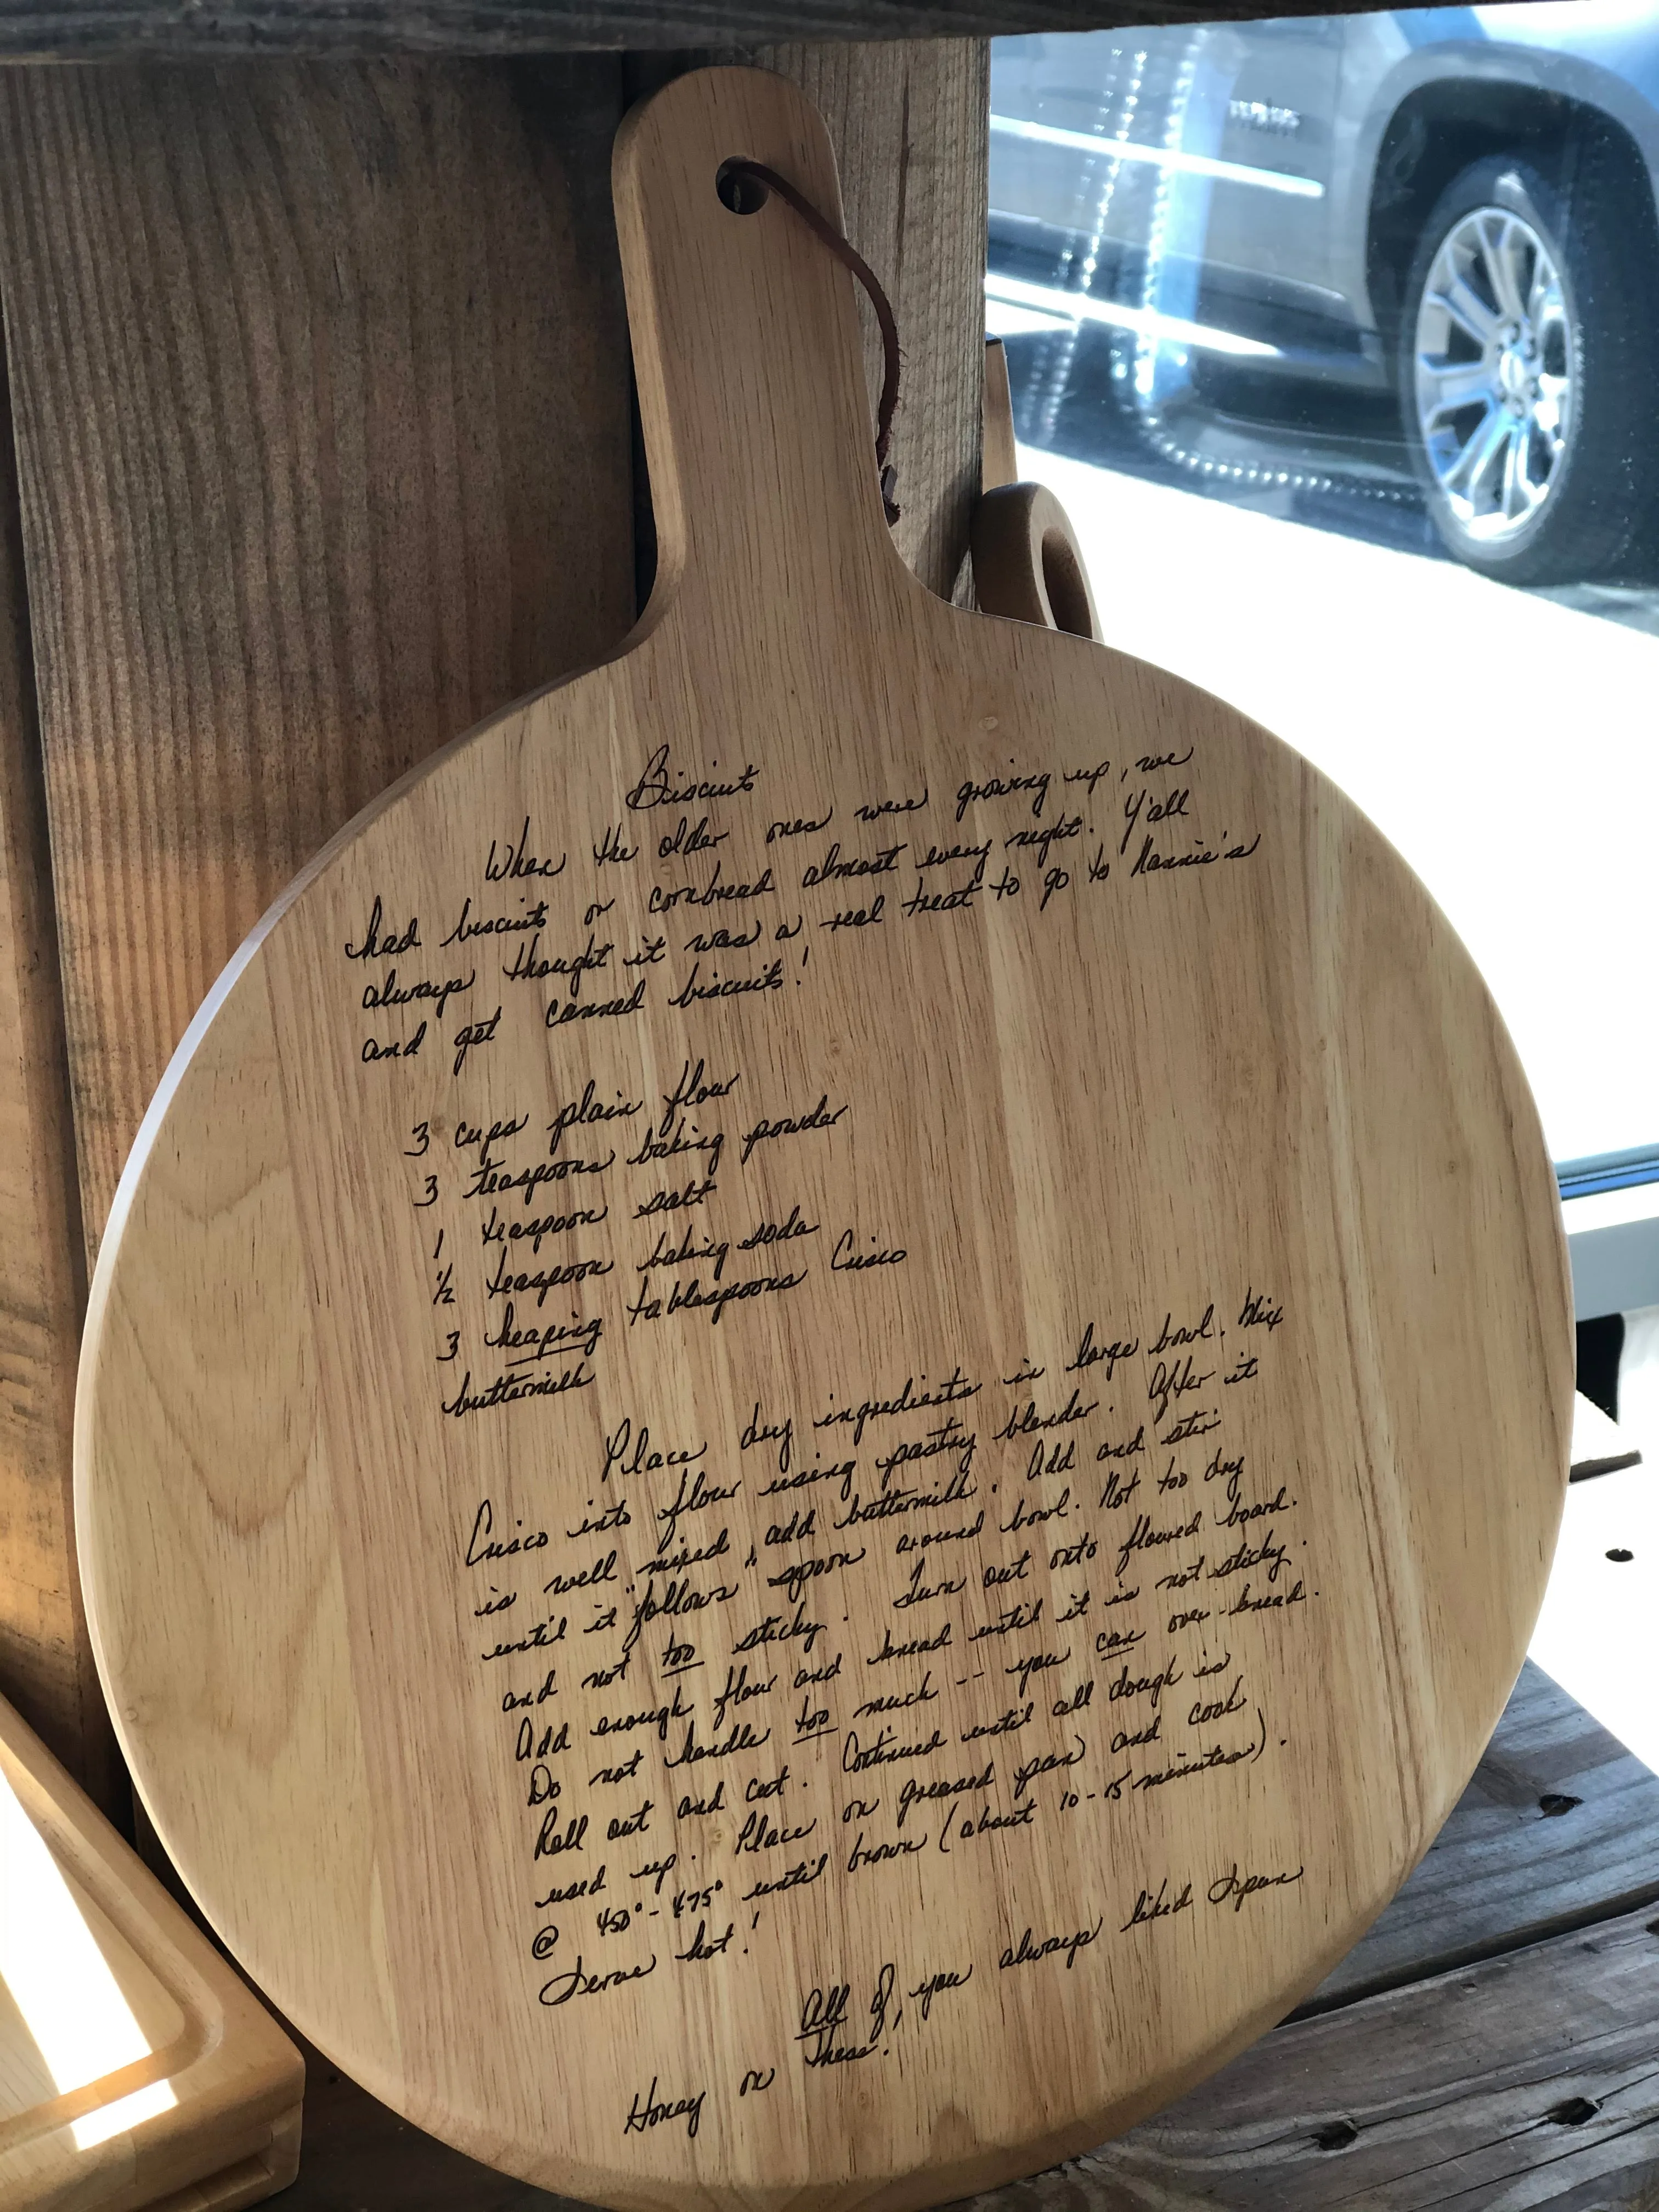 Biscuits
When the older ones were growing up, we
had biscuits or cornbread almost every night. Y'all
always thought it was a real treat to go to Nannie's
and get canned biscuits!
3 cups plain flour
3 teaspoons baking powder
1 teaspoon salt
½ teaspoon baking soda
3 heaping tablespoons Crisco
buttermilk
Place dry ingredients in large bowl. Mix
Crisco into flour using pastry blender. After it
is well mixed, add buttermilk. Add and stir
until it "follows" spoon around bowl. Not too dry
and not too sticky. Turn out onto floured board.
Add enough flour and knead until it is not sticky.
Do not handle too much -- you can over-knead.
Roll out and cut. Continued until all dough is
used up. Place on greased pan and cook
@ 450° - 475° until brown (about 10-15 minutes).
Serve hot!
All of you always liked Spun
Honey on these!